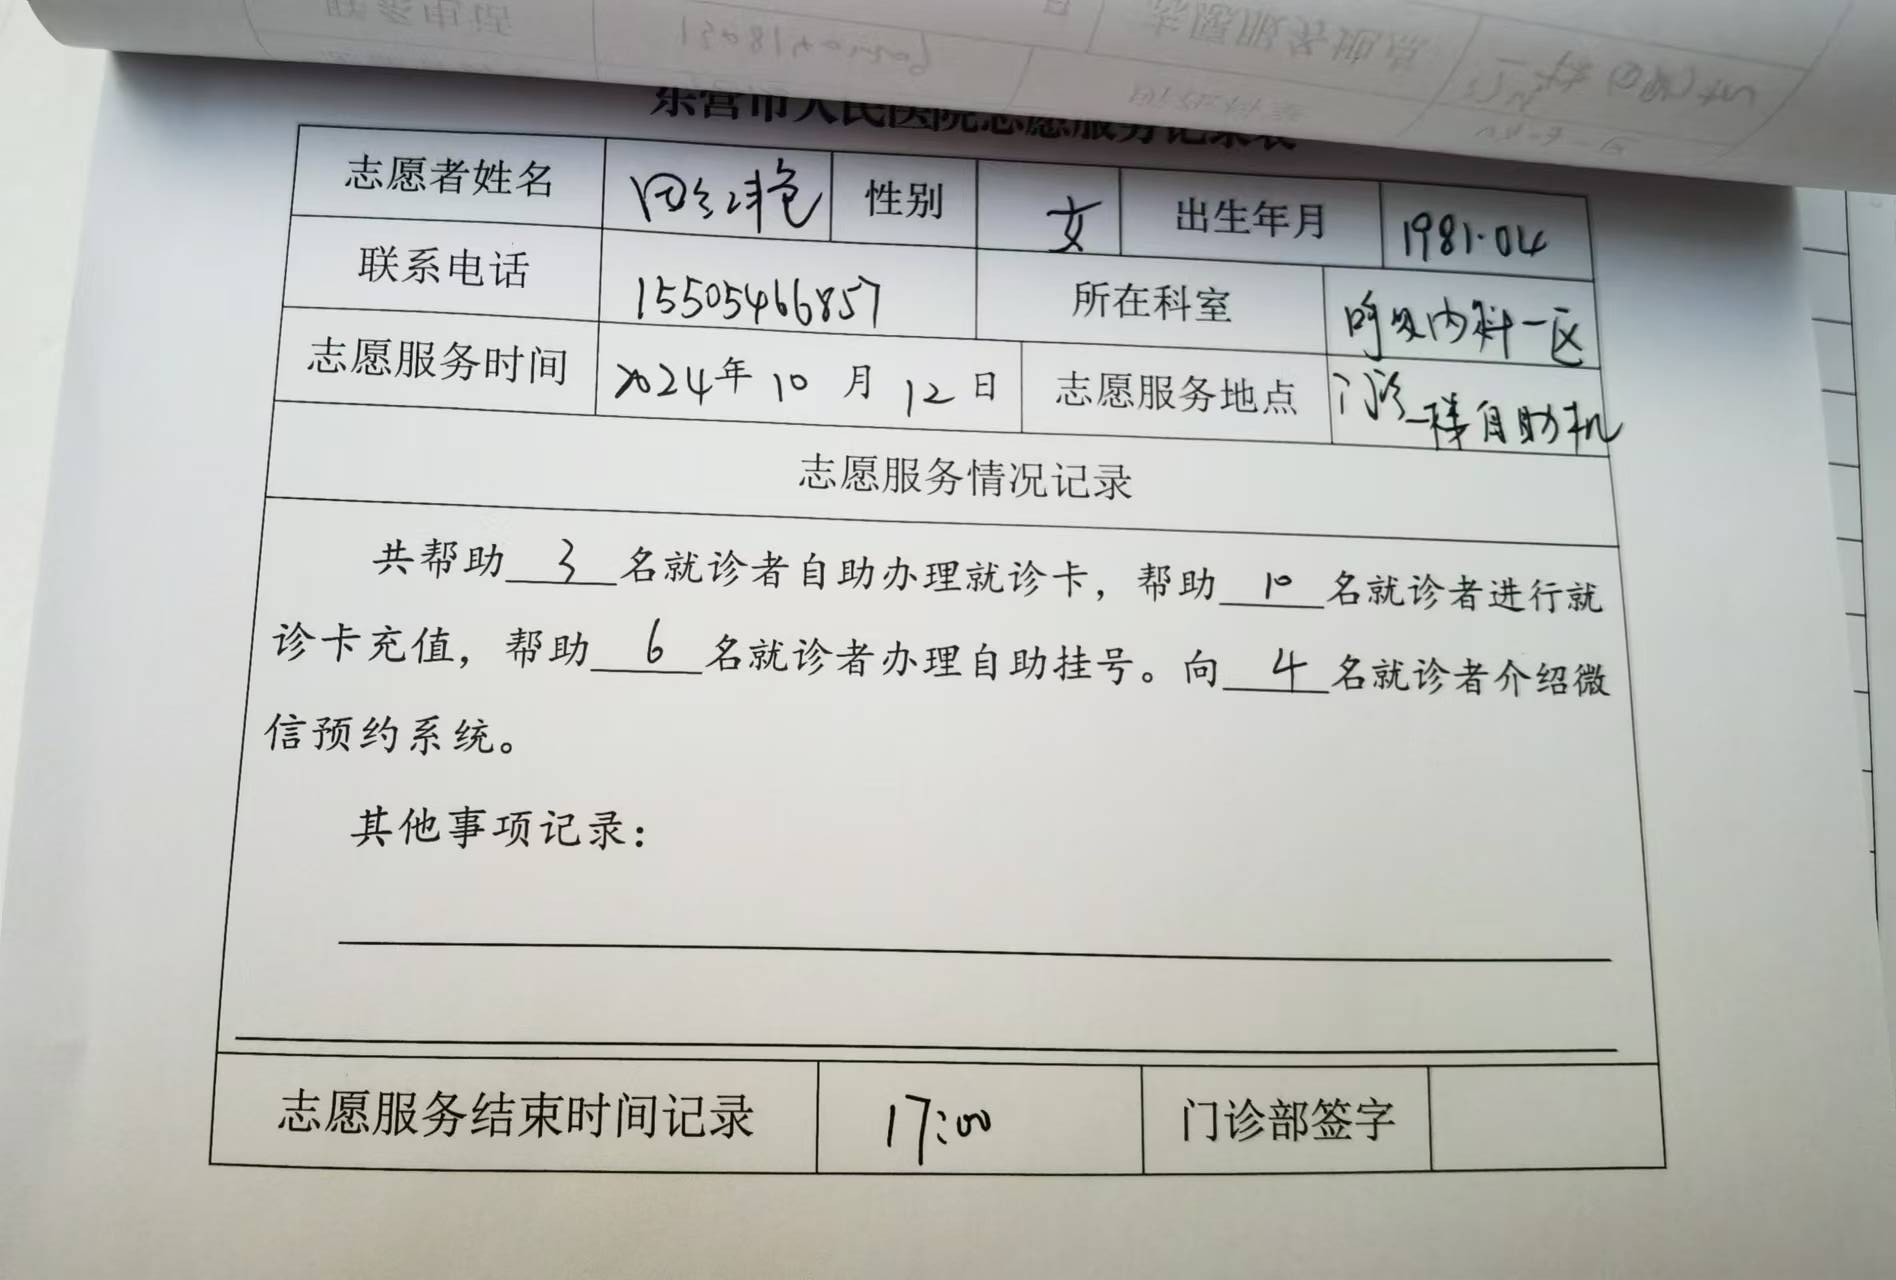 东营市人民医院志愿服务记录表
志愿者姓名 田红艳 性别 女 出生年月 1981.04
联系电话 15505466857 所在科室 呼吸内科一区
志愿服务时间 2024年 10 月 12 日 志愿服务地点 门诊一楼自助机
志愿服务情况记录
共帮助 3 名就诊者自助办理就诊卡，帮助 10 名就诊者进行就
诊卡充值，帮助 6 名就诊者办理自助挂号。向 4 名就诊者介绍微
信预约系统。
其他事项记录：
志愿服务结束时间记录 17:00 门诊部签字